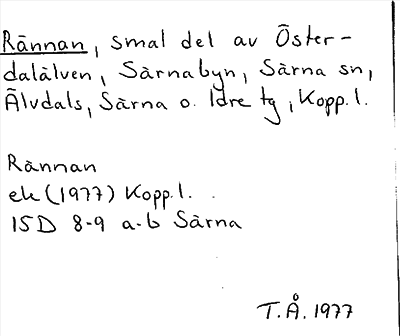 Rännan, smal del av Öster-
dalälven, Särnabyn, Särna sn,
Älvdals, Särna o. Idre tg, Kopp. l.
Rännan
ek (1977) Kopp. l.
15D 8-9 a-b Särna
T.Å. 1977